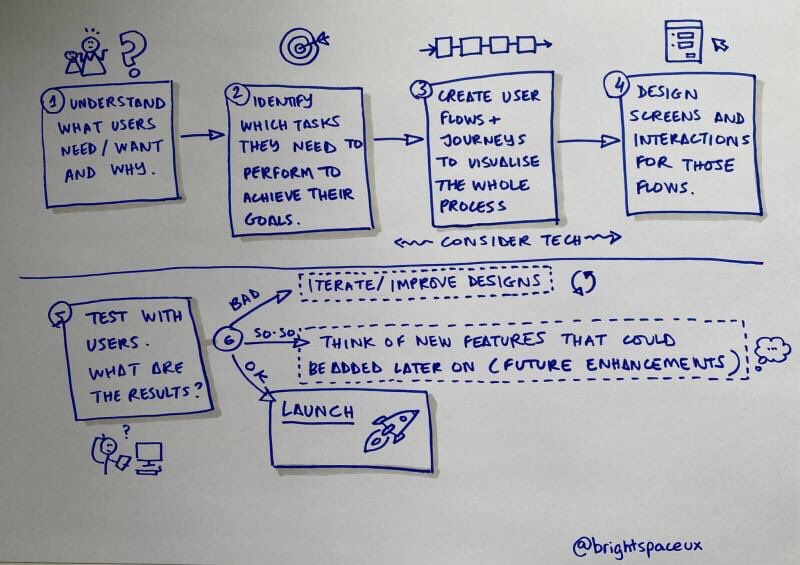 ?
1 UNDERSTAND
WHAT USERS
NEED / WANT
AND WHY.
2 IDENTIFY
WHICH TASKS
THEY NEED TO
PERFORM TO
ACHIEVE THEIR
GOALS.
3 CREATE USER
FLOWS +
JOURNEYS
TO VISUALISE
THE WHOLE
PROCESS
4 DESIGN
SCREENS AND
INTERACTIONS
FOR THOSE
FLOWS.
CONSIDER TECH
5 TEST WITH
USERS.
WHAT ARE
THE RESULTS?
?
6
BAD
ITERATE / IMPROVE DESIGNS
SO-SO
THINK OF NEW FEATURES THAT COULD
BE ADDED LATER ON (FUTURE ENHANCEMENTS)
OK
LAUNCH
@brightspaceux